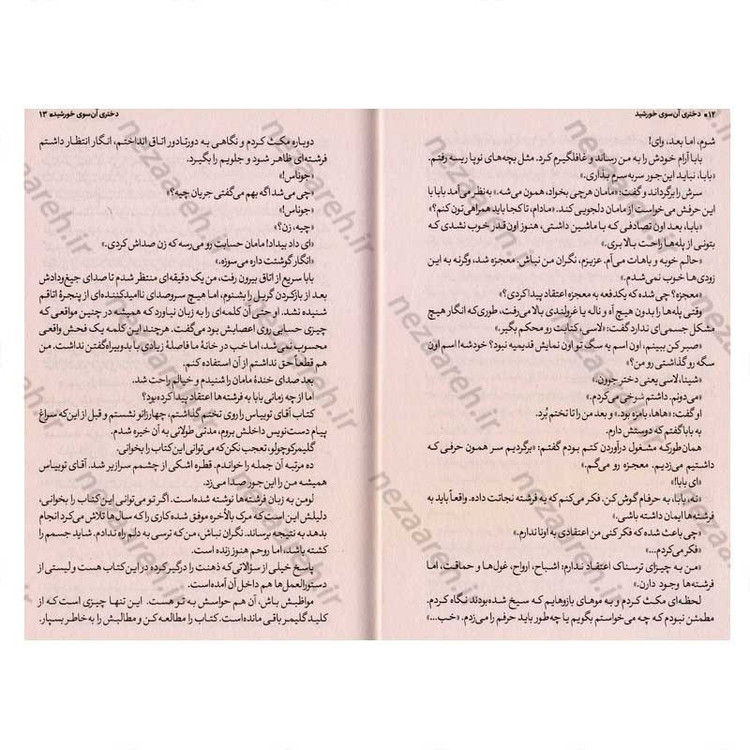 ۱۲ ● دختری آن‌سوی خورشید
شوم، اما بعد، وای!
بابا آرام خودش را به من رساند و غافلگیرم کرد. مثل بچه‌های نوپا ریسه رفتم.
«بابا، نباید این‌جور سربه‌سرم بذاری.»
سرش را برگرداند و گفت: «مامان هرچی بخواد، همون می‌شه.» به‌نظر می‌آمد بابا با
این حرفش می‌خواست از مامان دلجویی کند. «مادام، تا کجا باید همراهی‌تون کنم؟»
«بابا، بعد اون تصادفی که با ماشین داشتی، هنوز اون‌قدر خوب نشدی که
بتونی از پله‌ها راحت بالا بری.»
«حالم خوبه و باهات می‌آم. عزیزم، نگران من نباش. معجزه شد، وگرنه به این
زودی‌ها خوب نمی‌شدم.»
«معجزه؟ چی شده که یکدفعه به معجزه اعتقاد پیدا کردی؟»
وقتی پله‌ها را بدون هیچ آه و ناله یا غرولندی بالا می‌رفت، طوری‌که انگار هیچ
مشکل جسمی‌ای ندارد گفت: «لاسی، کتابت رو محکم بگیر.»
«صبر کن ببینم، اون اسم یه سگ تو اون نمایش قدیمیه نبود؟ خودشه! اسم اون
سگه رو گذاشتی رو من؟»
«شینا، لاسی یعنی دختر جوون.»
«می‌دونم. داشتم شوخی می‌کردم.»
او گفت: «هاها، بامزه بود.» و بعد من را تا تختم بُرد.
به بابا گفتم که دوستش دارم.
همان‌طورکه مشغول درآوردن کتم بودم گفتم: «برگردیم سر همون حرفی که
داشتیم می‌زدیم. معجزه رو می‌گم.»
«ای بابا!»
«نه، بابا، به حرفام گوش کن. فکر می‌کنم که یه فرشته نجاتت داده. واقعاً باید به
فرشته‌ها ایمان داشته باشی.»
«چی باعث شده که فکر کنی من اعتقادی به اونا ندارم.»
«فکر می‌کردم...»
«من به چیزای ترسناک اعتقاد ندارم؛ اشباح، ارواح، غول‌ها و حماقت، اما
فرشته‌ها وجود دارن.»
لحظه‌ای مکث کردم و به موهای بازوهایم که سیخ شده‌بودند نگاه کردم.
مطمئن نبودم که چه می‌خواستم بگویم یا چه‌طور باید حرفم را می‌زدم. «خب...»
دختری آن‌سوی خورشید ● ۱۳
دوباره مکث کردم و نگاهی به دورتادور اتاق انداختم، انگار انتظار داشتم
فرشته‌ای ظاهر شود و جلویم را بگیرد.
«جوناس!»
«چی می‌شد اگه بهم می‌گفتی جریان چیه؟»
«جوناس!»
«چیه، زن؟»
«ای داد بیداد! مامان حسابت رو می‌رسه که زن صداش کردی.»
«انگار گوشتت داره می‌سوزه.»
بابا سریع از اتاق بیرون رفت، من یک دقیقه‌ای منتظر شدم تا صدای جیغ‌ودادش
بعد از بازکردن گریل را بشنوم، اما هیچ سروصدای ناامیدکننده‌ای از پنجرهٔ اتاقم
شنیده نشد. او حتی آن کلمه‌ای را به زبان نیاورد که همیشه در چنین مواقعی که
چیزی حسابی روی اعصابش بود می‌گفت. هرچند این کلمه یک فحش واقعی
محسوب نمی‌شد، اما خب در خانهٔ ما فاصلهٔ زیادی با بدوبیراه‌گفتن نداشت. من
هم قطعاً حق نداشتم از آن استفاده کنم.
بعد صدای خندهٔ مامان را شنیدم و خیالم راحت شد.
اما از چه زمانی بابا به فرشته‌ها اعتقاد پیدا کرده بود؟
کتاب آقای توبیاس را روی تختم گذاشتم، چهارزانو نشستم و قبل از این‌که سراغ
پیام دست‌نویس داخلش بروم، مدتی طولانی به آن خیره شدم.
گلیمرکوچولو، تعجب نکن که می‌توانی این کتاب را بخوانی.
ده مرتبه آن جمله را خواندم. قطره اشکی از چشمم سرازیر شد. آقای توبیاس
همیشه من را این‌جور صدا می‌زد.
لومن به زبان فرشته‌ها نوشته شده‌است. اگر تو می‌توانی این کتاب را بخوانی،
دلیلش این است که مرگ بالأخره موفق شده کاری را که سال‌ها تلاش می‌کرد انجام
بدهد به نتیجه برساند. نگران نباش، من که ترسی به دلم راه ندادم. شاید جسمم را
کشته باشد، اما روحم هنوز زنده است.
پاسخ خیلی از سؤالاتی که ذهنت را درگیر کرده در این کتاب هست و لیستی از
دستورالعمل‌ها هم داخل آن آمده‌است.
مواظبش باش، آن هم حواسش به تو هست. این تنها چیزی است که از
کلید گلیمر باقی مانده‌است. کتاب را مطالعه کن و مطالبش را به خاطر بسپار.
nezaareh.ir